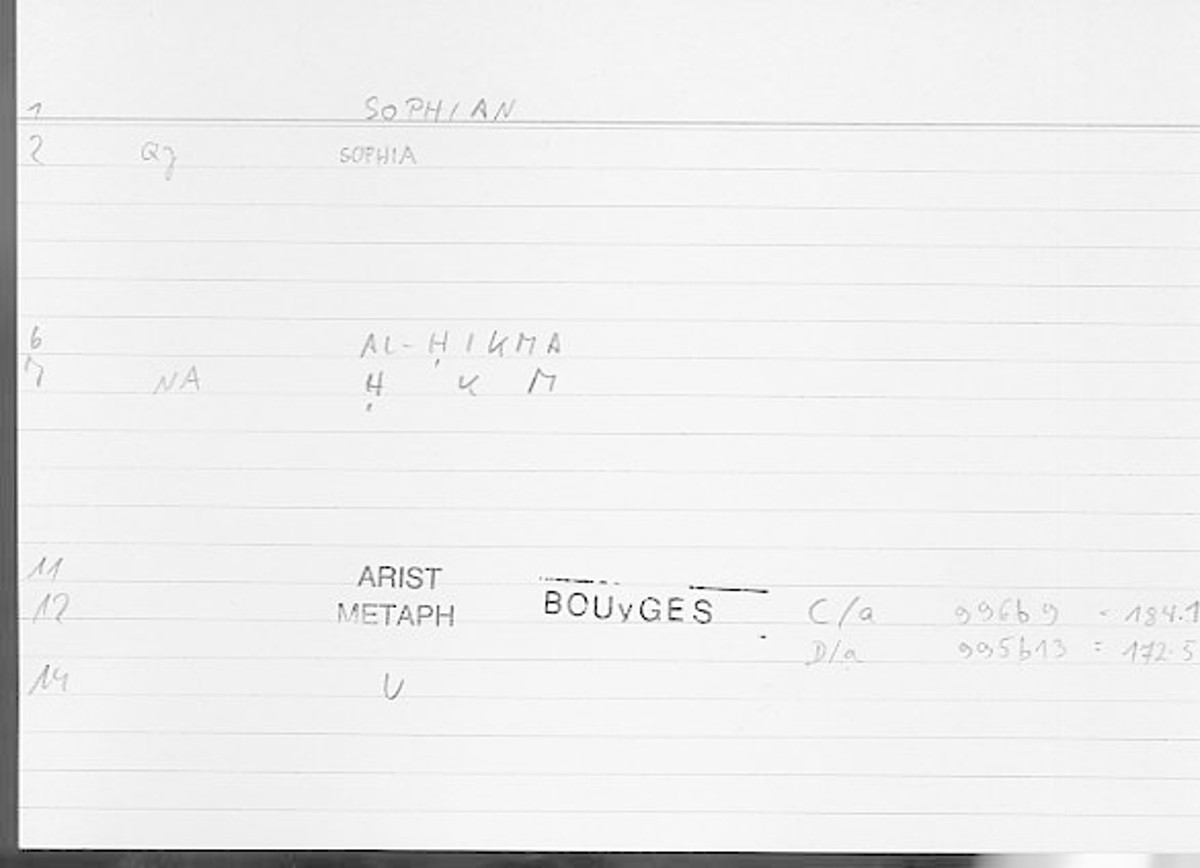 1 SOPHIAN
2 Qz SOPHIA
6 AL-ḤIKMA
7 NA Ḥ K M
11 ARIST
12 METAPH BOUyGES C/a 996b9 = 184.1
D/a 995b13 = 172.5
14 U